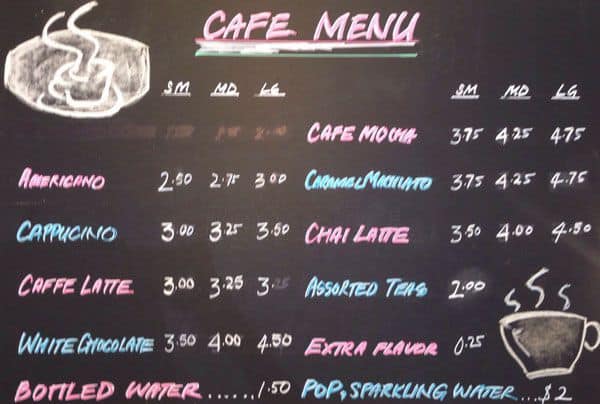 CAFE MENU
SM MD LG
AMERICANO 2.50 2.75 3.00
CAPPUCINO 3.00 3.25 3.50
CAFFE LATTE 3.00 3.25 3.25
WHITE CHOCOLATE 3.50 4.00 4.50
BOTTLED WATER......1.50
SM MD LG
CAFE MOCHA 3.75 4.25 4.75
CARAMEL MACHIATO 3.75 4.25 4.75
CHAI LATTE 3.50 4.00 4.50
ASSORTED TEAS 2.00
EXTRA FLAVOR 0.25
POP, SPARKLING WATER...$2